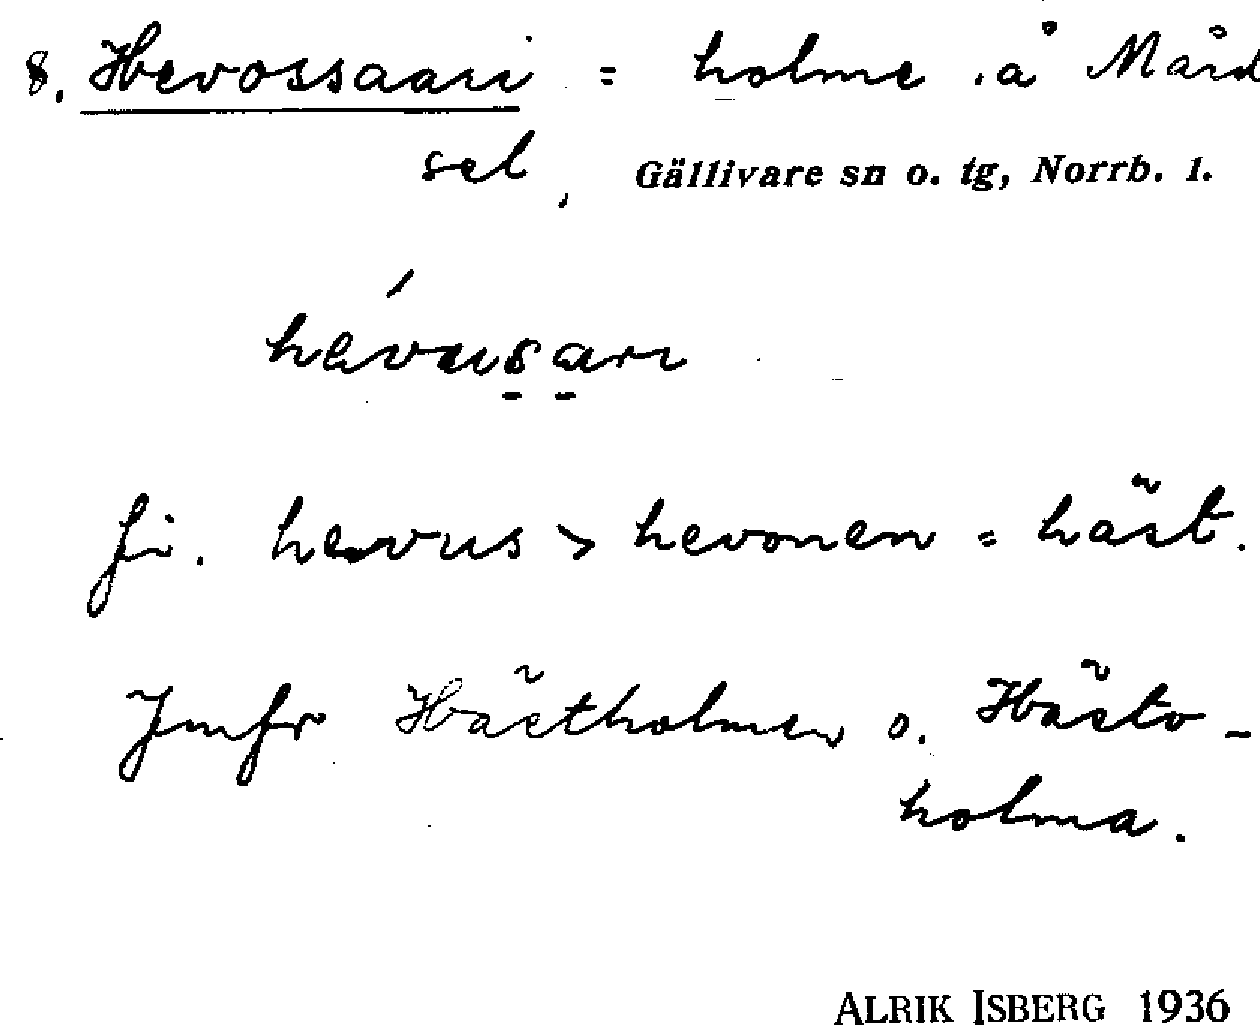 8. Hevossaari = holme å Mård
sel, Gällivare sn o. tg, Norrb. l.
hévusari
fi. hevus > hevonen = häst.
Jmfr Hästholmen o. Hästo-
holma.
ALRIK ISBERG 1936